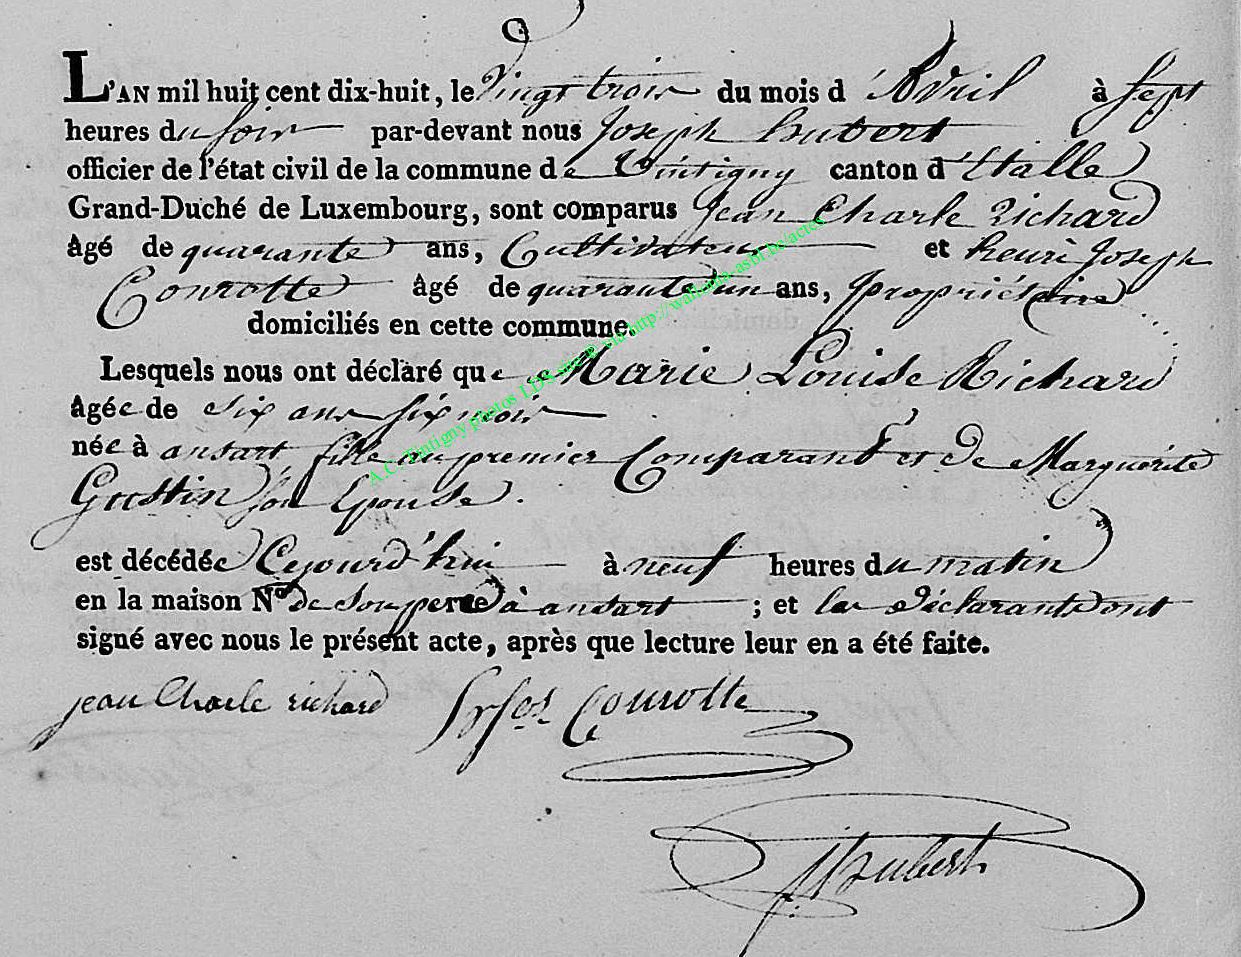 L'AN mil huit cent dix-huit, le Vingt trois du mois d'Avril à Sept
heures du soir par-devant nous Joseph hubert
officier de l'état civil de la commune de Tintigny canton d'Etalle
Grand-Duché de Luxembourg, sont comparus Jean Charle Richard
âgé de quarante ans, Cultivateur et henri Joseph
Courotte âgé de quarante un ans, propriétaire
domiciliés en cette commune.
Lesquels nous ont déclaré que Marie Louise Richard
âgée de six ans six mois
née à ansart fille du premier Comparant et de Marguerite
Gustin son Epouse.
est décédée Cejourd'hui à neuf heures du matin
en la maison N° de Son pere à ansart ; et les Déclarants ont
signé avec nous le présent acte, après que lecture leur en a été faite.
jean Charle richard Courotte
hubert
A.C. Tintigny photos LDS via http://wallonia-asbl.be/actes